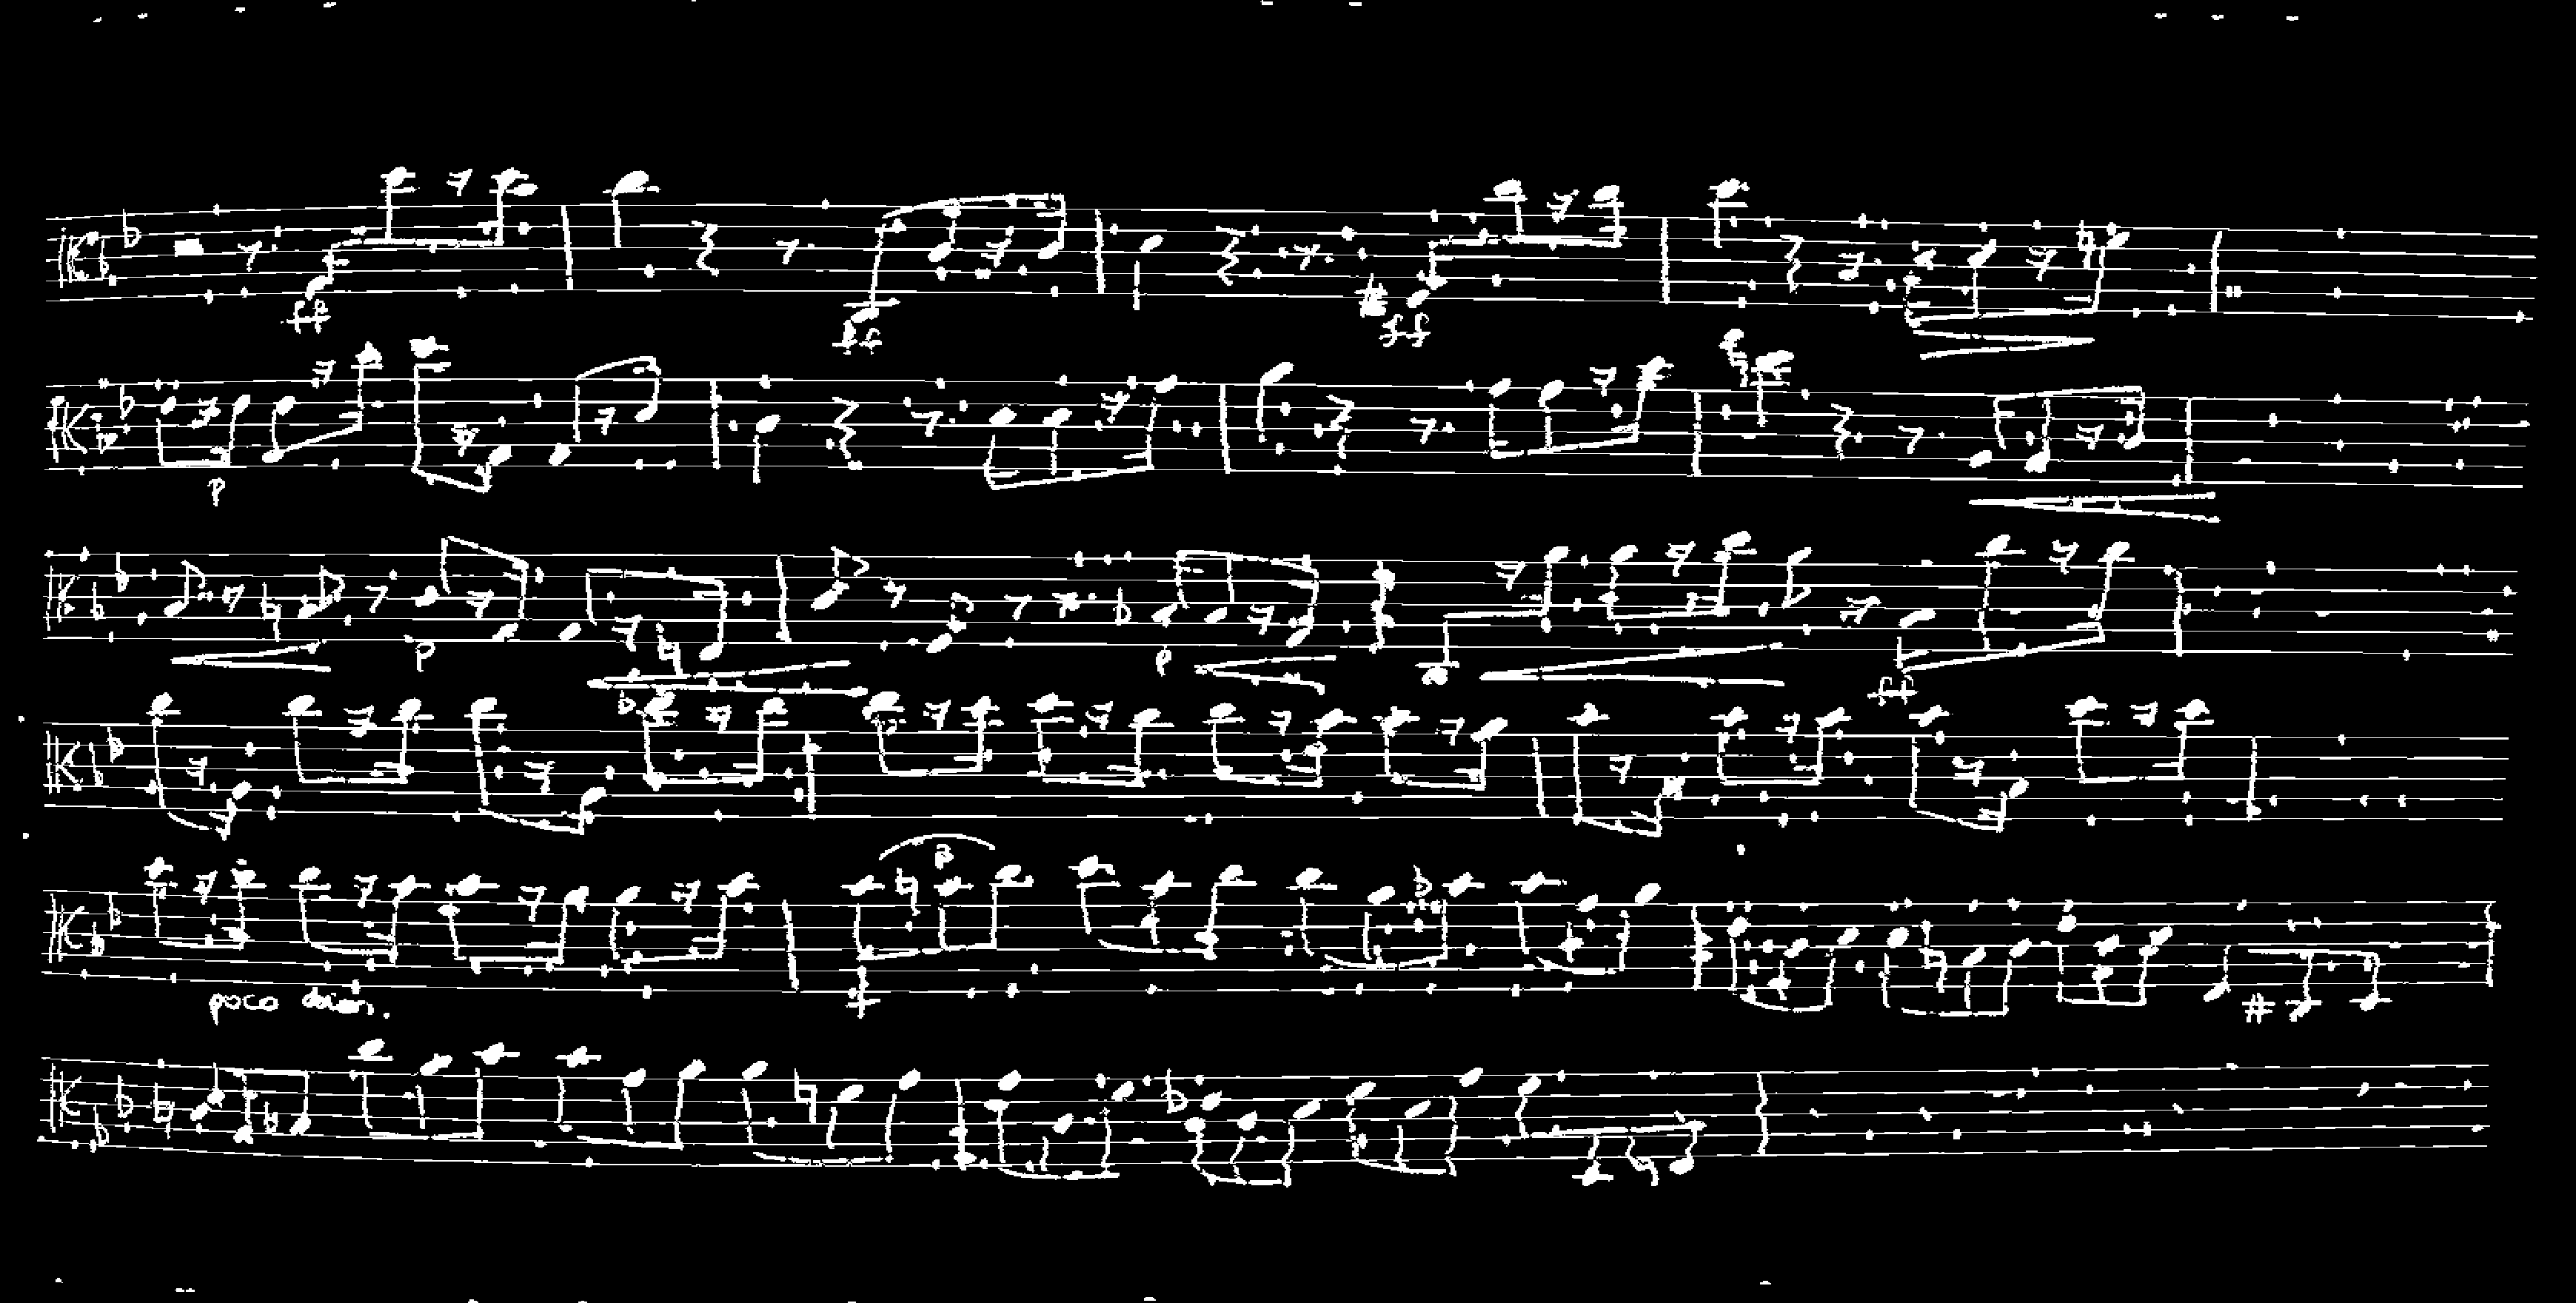 ff ff ff
p
p p
ff
3
poco dim.
f